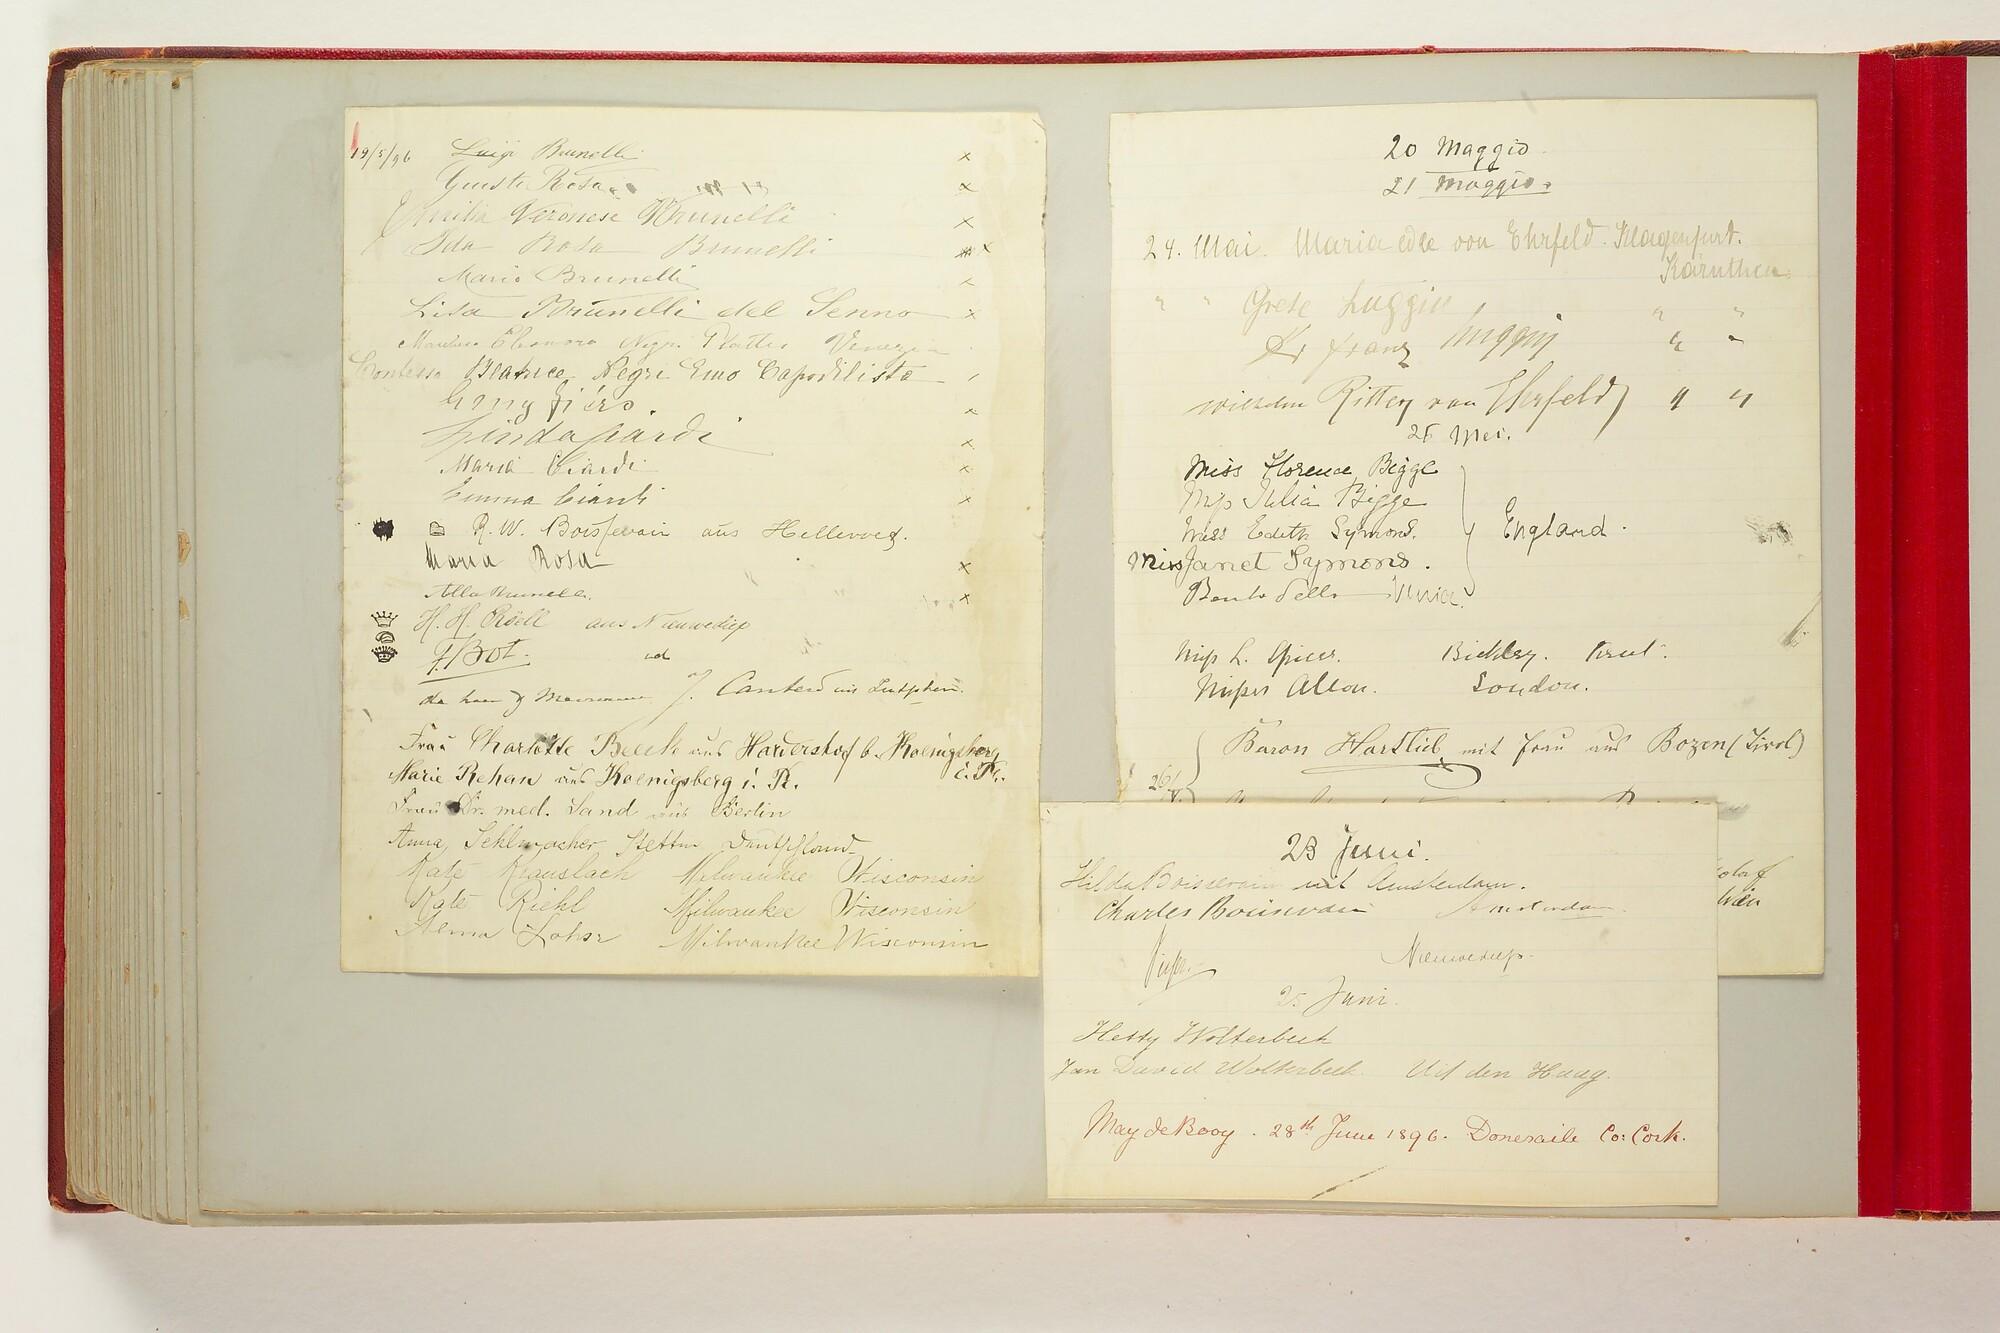 19/5/96 Luigi Brunelli
Giusta Rosa
Emilia Veronese Brunelli
Ida Rosa Brunelli
Maria Brunelli
Lisa Brunelli del Senno
Eleonora Negri Venezia
Contessa Beatrice Negri Emo Capodilista
Linda Ciardi
Maria Ciardi
Emma Ciardi
R. W. Boissevain aus Hellevoet.
Maria Rosa
Brunelli
H. H. Röell aus Nieuwediep
F. Bot. id
J. Canters uit Zutphen.
Frau Charlotte Beeck aus Hardershof b. Koenigsberg
i. Pr.
Marie Rehan aus Koenigsberg i. Pr.
Frau Dr. med. Sand aus Berlin
Anna Stettin Deutschland
Kate Milwaukee Wisconsin
Kate Riehl Milwaukee Wisconsin
Alma Milwaukee Wisconsin
20 Maggio
21 Maggio.
24. Mai. Maria edle von Ehrfeld. Klagenfurt.
Kärnthen
" " Grete Luggin " "
Dr Franz Luggin " "
Wilhelm Ritter von Ehrfeld " "
25 Mei.
Miss Florence Bigge
Miss Julia Bigge
Miss Edith Symons. England.
Miss Janet Symons.
Miss L. Spicer. Bickley. Kent.
Misses Allon. London.
Baron Hartlieb mit Frau aus Bozen (Tirol)
26/V.
23 Juni.
Hilda Boissevain uit Amsterdam.
Charles Boissevain Amsterdam.
Nieuwediep.
25 Juni.
Hesty Wolterbeek
Jan David Wolterbeek. Uit den Haag.
May de Booy. 28th June 1896. Doneraile Co: Cork.